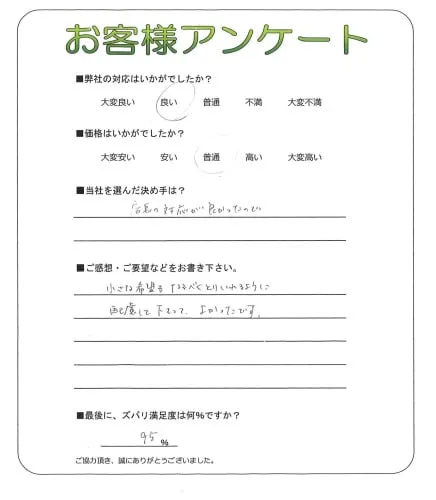 お客様アンケート
■弊社の対応はいかがでしたか？
大変良い 良い 普通 不満 大変不満
■価格はいかがでしたか？
大変安い 安い 普通 高い 大変高い
■当社を選んだ決め手は？
店長の対応が良かったので
■ご感想・ご要望などをお書き下さい。
小さな希望もなるべくとりいれるように
配慮して下さって、よかったです。
■最後に、ズバリ満足度は何％ですか？
95 ％
ご協力頂き、誠にありがとうございました。